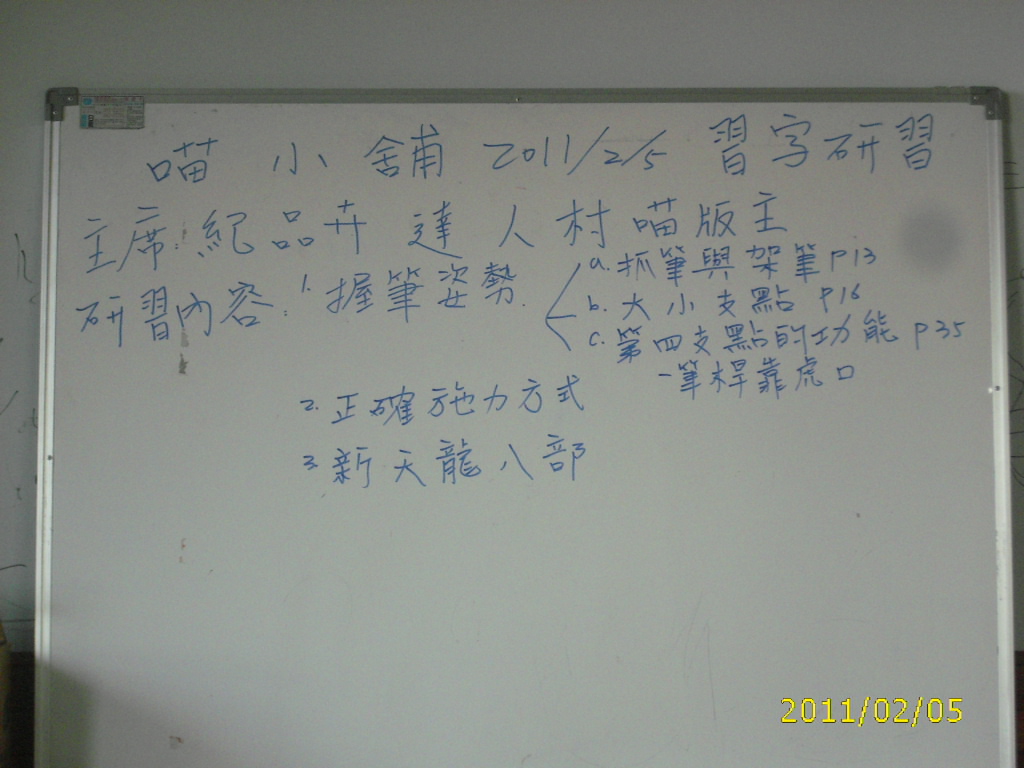 喵小舖 2011/2/5 習字研習
主席:紀品卉 達人村喵版主
研習內容: 1. 握筆姿勢
a. 抓筆與架筆 P13
b. 大小支點 P16
c. 第四支點的功能 P35
-筆桿靠虎口
2. 正確施力方式
3. 新天龍八部
2011/02/05